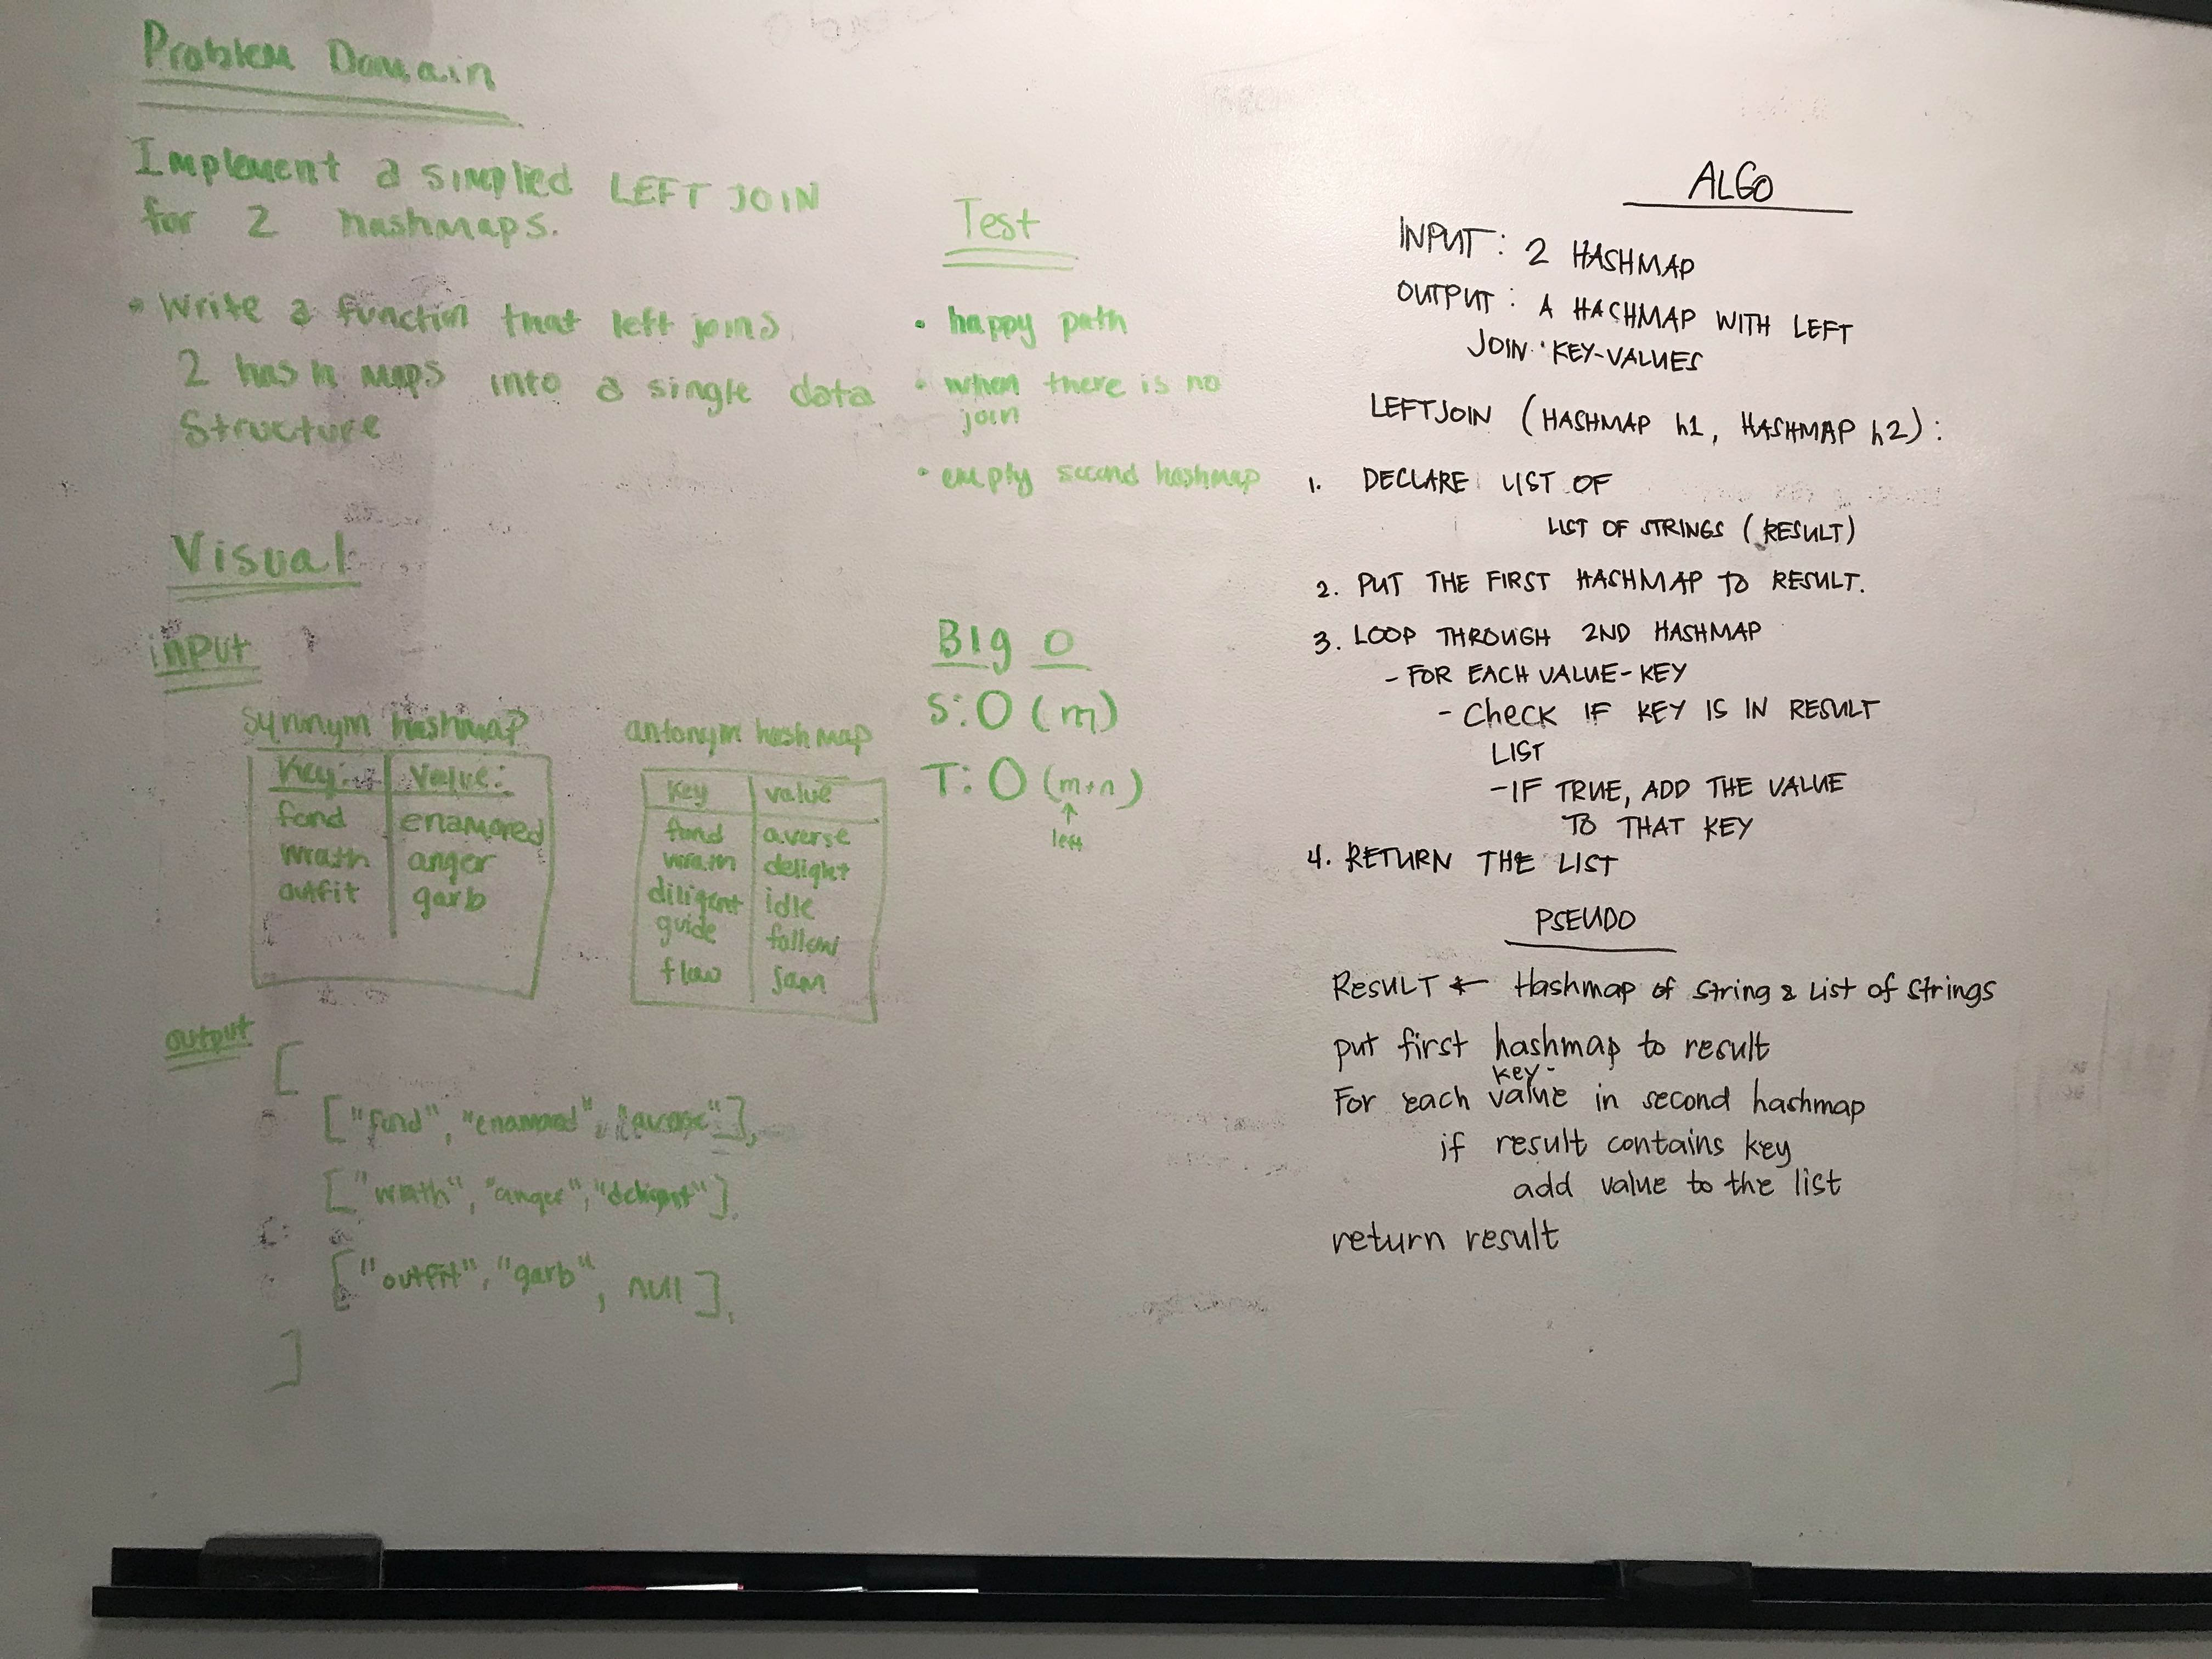 Problem Domain
Implement a simplied LEFT JOIN
for 2 hashmaps.
• Write a function that left joins
2 hash maps into a single data
structure
Test
• happy path
• when there is no
join
• empty second hashmap
Visual
input
synonym hashmap
Key: Value:
fond enamored
wrath anger
outfit garb
antonym hashmap
key value
fond averse
wrath delight
diligent idle
guide follow
flow jam
Big O
S: O (m)
T: O (m+n)
↑
left
output
[
["fond", "enamored", "averse"],
["wrath", "anger", "delight"],
["outfit", "garb", null],
]
ALGO
INPUT: 2 HASHMAP
OUTPUT: A HACHMAP WITH LEFT
JOIN KEY-VALUES
LEFTJOIN (HASHMAP h1, HASHMAP h2):
1. DECLARE LIST OF
LIST OF STRINGS (RESULT)
2. PUT THE FIRST HASHMAP TO RESULT.
3. LOOP THROUGH 2ND HASHMAP
- FOR EACH VALUE-KEY
- Check IF KEY IS IN RESULT
LIST
- IF TRUE, ADD THE VALUE
TO THAT KEY
4. RETURN THE LIST
PSEUDO
RESULT ← Hashmap of string & List of strings
put first hashmap to result
key-
For each value in second hashmap
if result contains key
add value to the list
return result